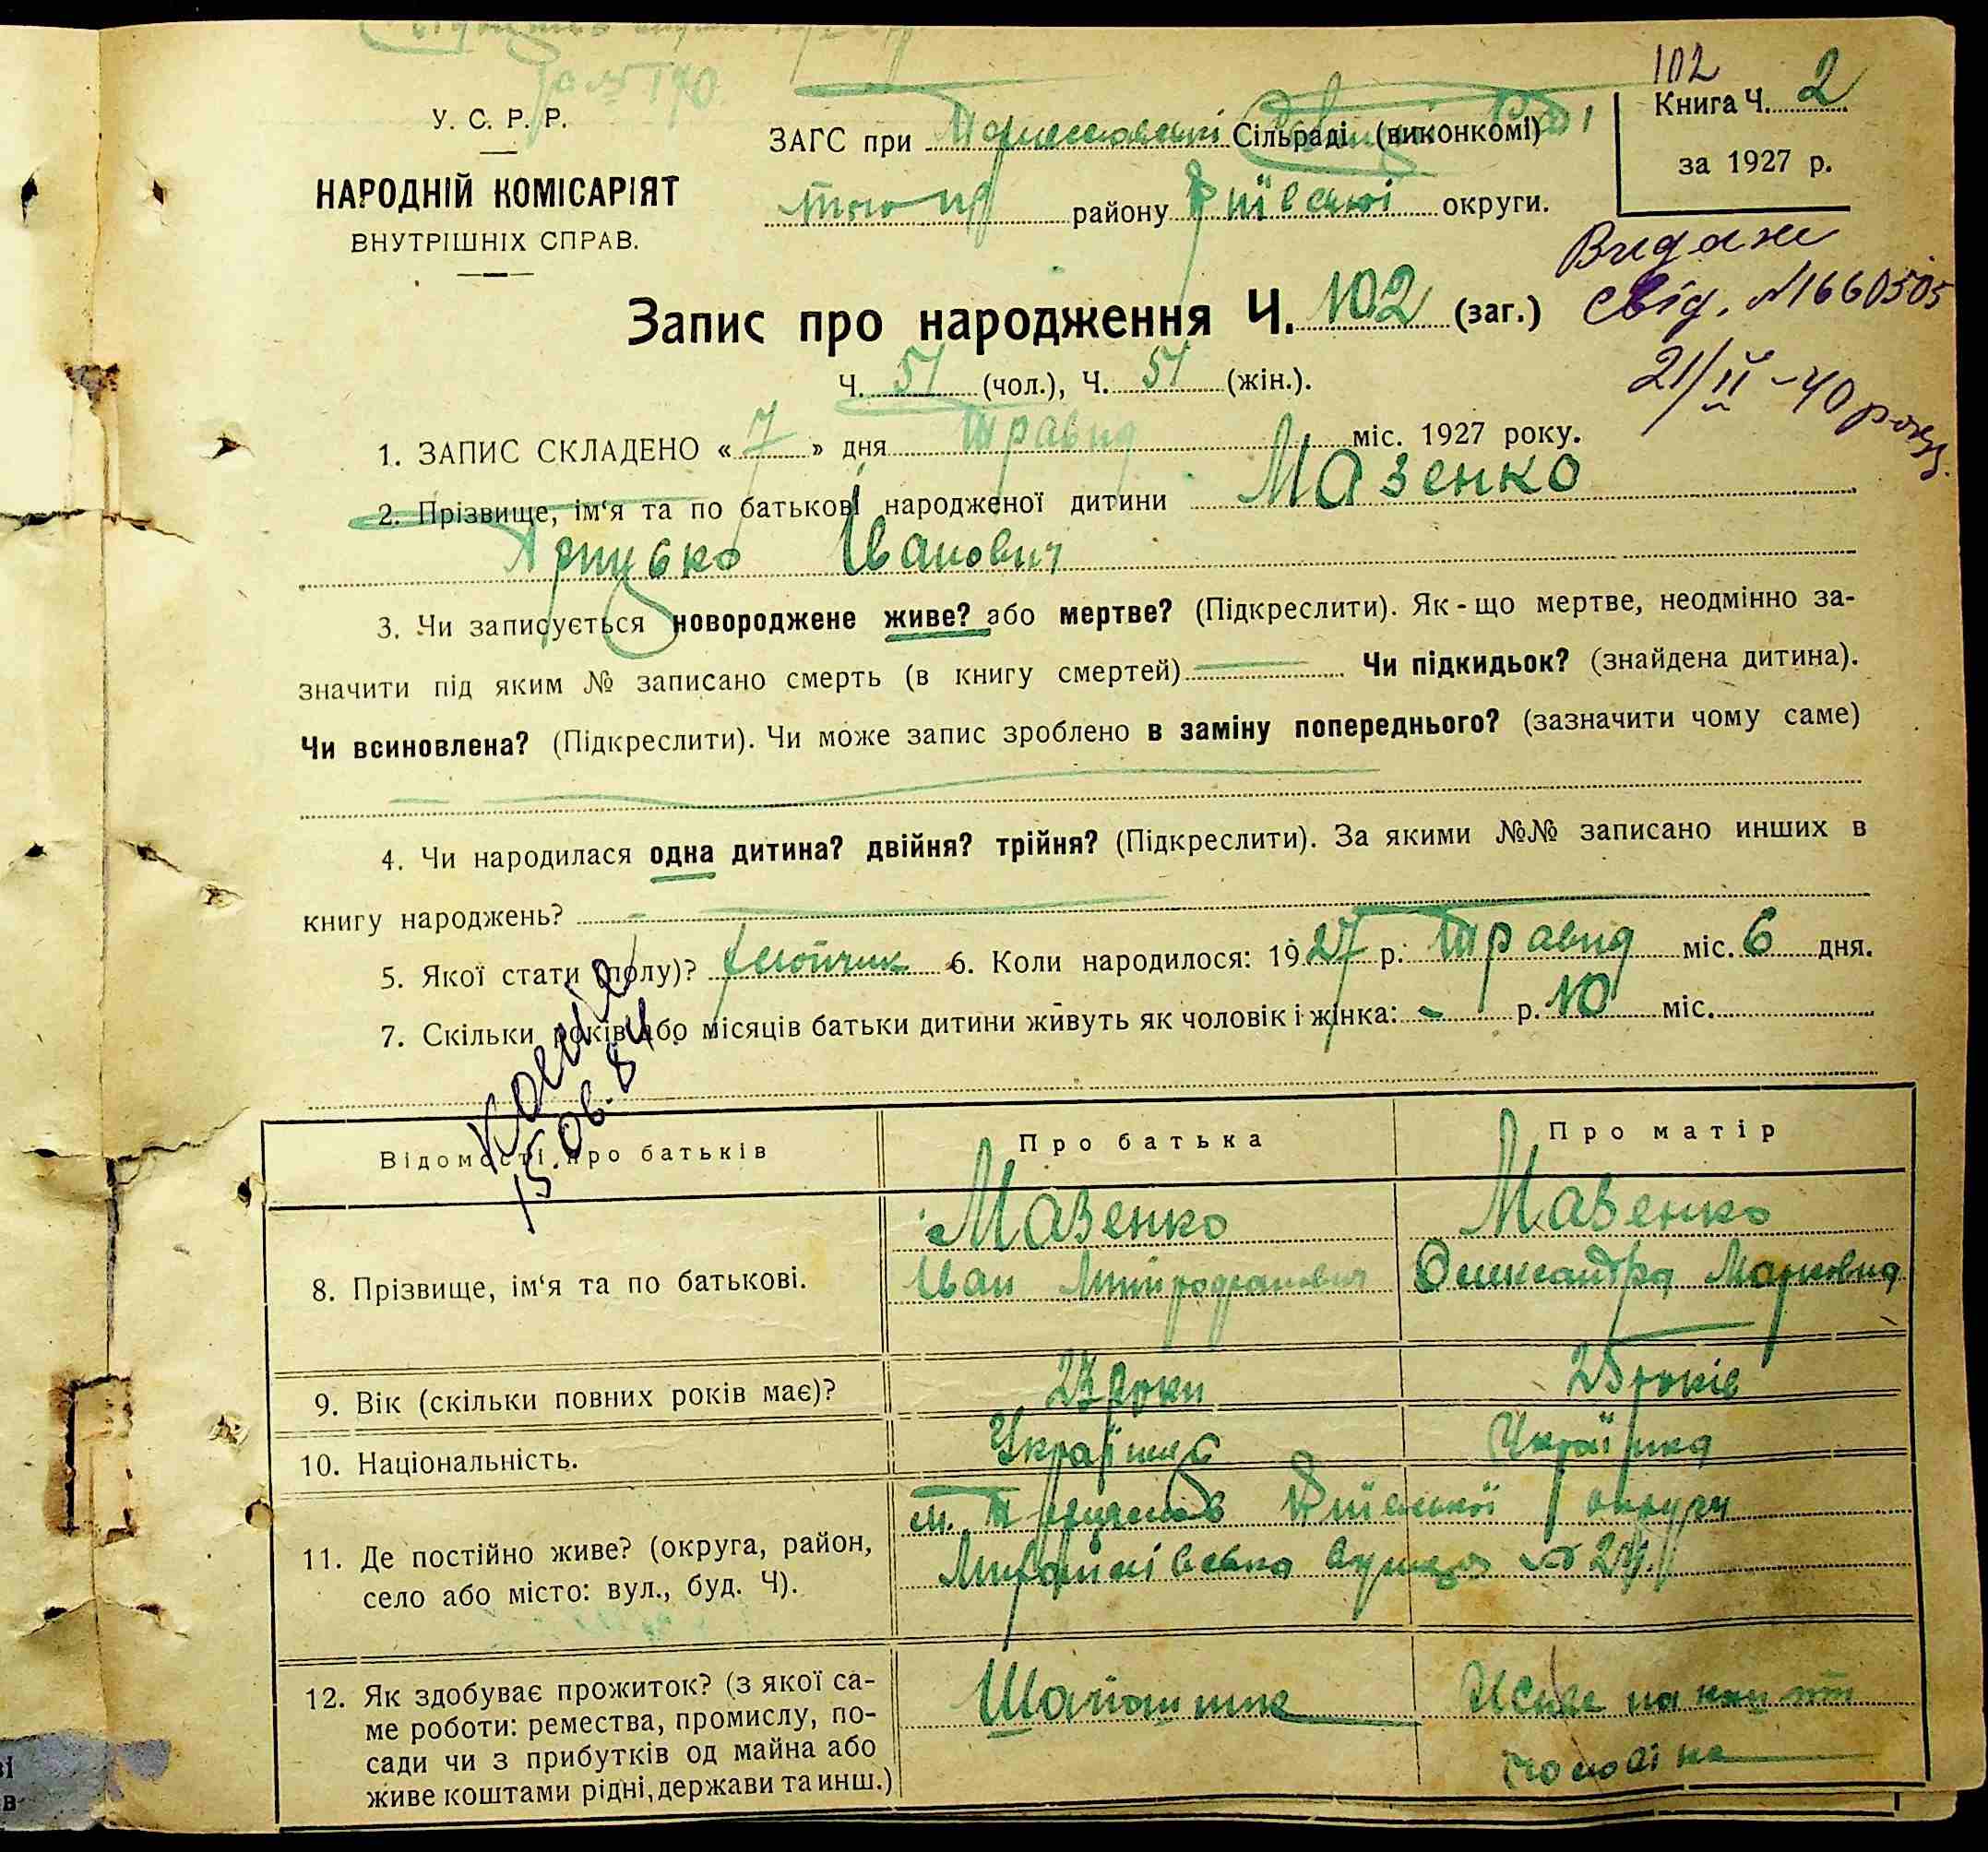 102
У. С. Р. Р.
НАРОДНІЙ КОМІСАРІЯТ
ВНУТРІШНІХ СПРАВ.
ЗАГС при Сільраді (виконкомі)
району округи.
Книга Ч. 2
за 1927 р.
Видане
свід. №1660505
21/II-40 року.
Запис про народження Ч. 102 (заг.)
Ч. 51 (чол.), Ч. 51 (жін.).
1. ЗАПИС СКЛАДЕНО « 7 » дня травня міс. 1927 року.
2. Прізвище, ім‘я та по батькові народженої дитини Мазенко
Грицько Іванович
3. Чи записується новороджене живе? або мертве? (Підкреслити). Як-що мертве, неодмінно за-
значити під яким № записано смерть (в книгу смертей) Чи підкидьок? (знайдена дитина).
Чи всиновлена? (Підкреслити). Чи може запис зроблено в заміну попереднього? (зазначити чому саме)
4. Чи народилася одна дитина? двійня? трійня? (Підкреслити). За якими №№ записано инших в
книгу народжень?
5. Якої стати (полу)? хлопчик 6. Коли народилося: 1927 р. травня міс. 6 дня.
7. Скільки років або місяців батьки дитини живуть як чоловік і жінка: - р. 10 міс.
15.06.84
Відомості про батьків Про батька Про матір
8. Прізвище, ім‘я та по батькові.
Мазенко
Іван Митрофанович
Мазенко
Олександра Марковна
9. Вік (скільки повних років має)? 23 роки 25 років
10. Національність. Українец Українка
11. Де постійно живе? (округа, район,
село або місто: вул., буд. Ч).
м. округи
вулиця №
12. Як здобуває прожиток? (з якої са-
ме роботи: ремества, промислу, по-
сади чи з прибутків од майна або
живе коштами рідні, держави та инш.)
Живе на кошт
чоловіка